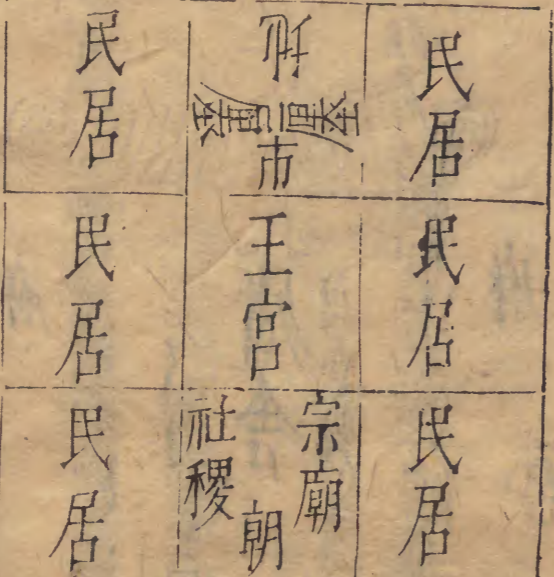 民居
市
民居
民居
王宮
民居
民居
宗廟
朝
社稷
民居